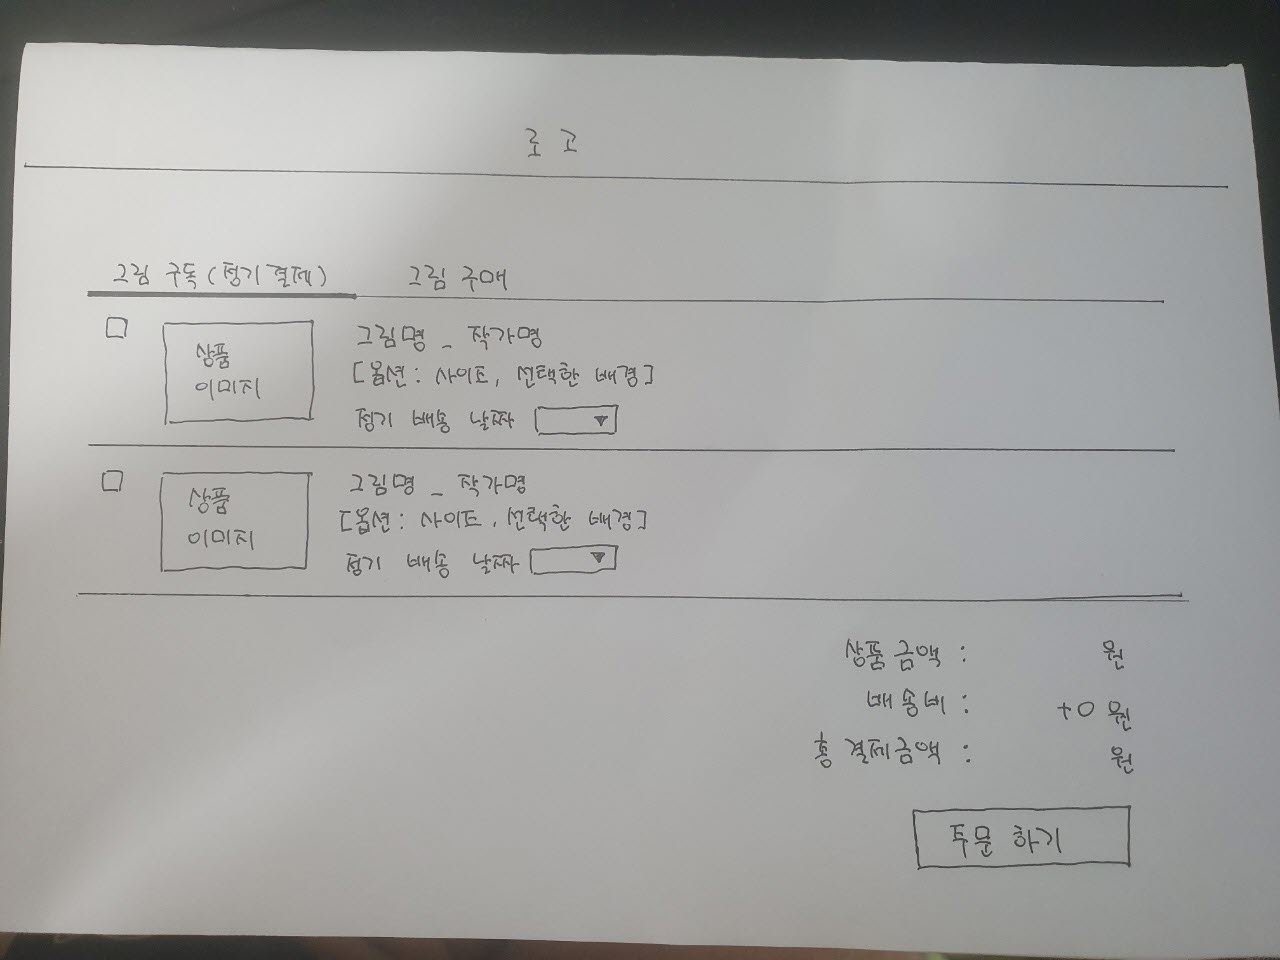 로고
그림 구독(정기결제) 그림 구매
상품
이미지
그림명 _ 작가명
[옵션: 사이트, 선택한 배경]
정기 배송 날짜
상품
이미지
그림명 _ 작가명
[옵션: 사이트, 선택한 배경]
정기 배송 날짜
상품금액 : 원
배송비 : +0 원
총 결제금액 : 원
주문 하기